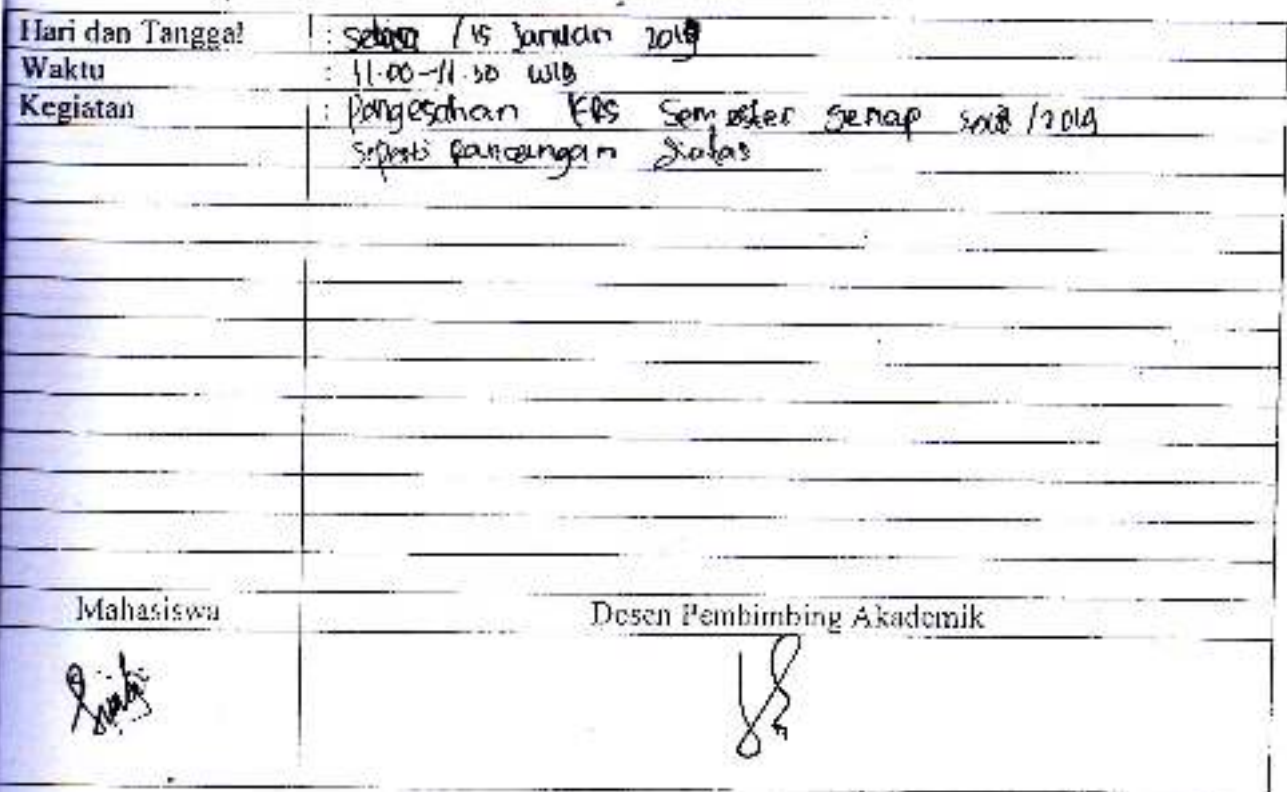 Hari dan Tanggal : Selasa / 15 Januari 2019
Waktu : 11.00-11.30 WIB
Kegiatan : Pengesahan KRS Semester Genap 2018/2019
seperti rancangan diatas
Mahasiswa Dosen Pembimbing Akademik